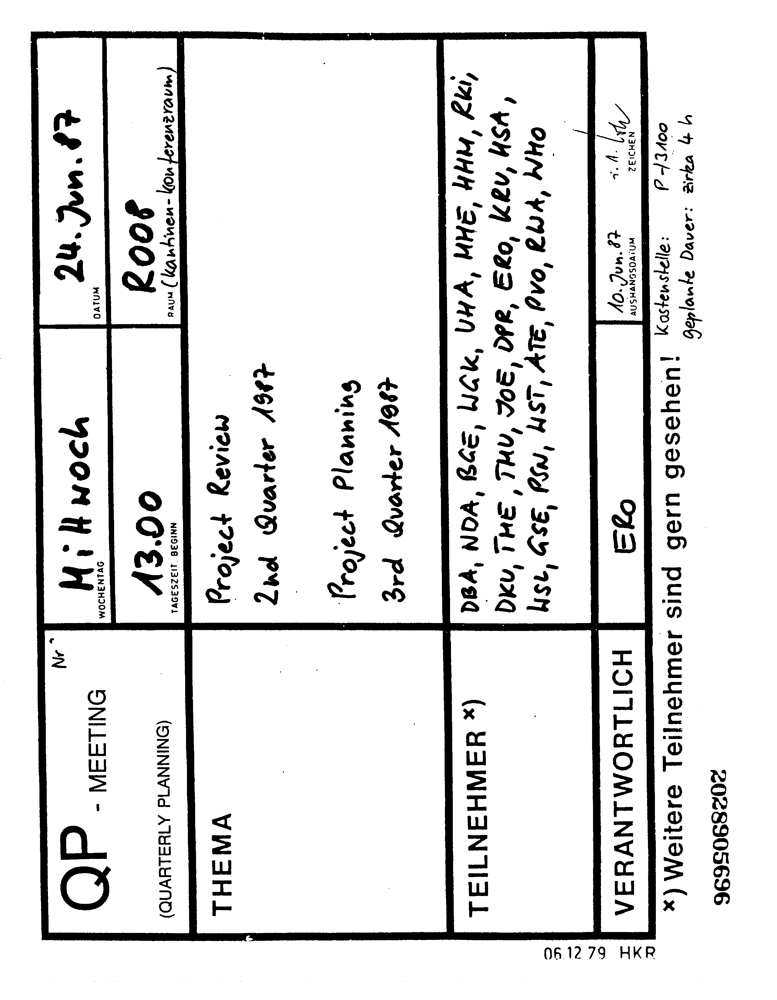 QP - MEETING Nr
(QUARTERLY PLANNING)
Mittwoch
WOCHENTAG
24. Jun. 87
DATUM
13.00
TAGESZEIT BEGINN
R008
RAUM (Kantinen-Konferenzraum)
THEMA
Project Review
2nd Quarter 1987
Project Planning
3rd Quarter 1987
TEILNEHMER *)
DBA, NDA, BGE, WGK, UHA, HHE, HHM, RKI,
DKU, THE, THU, JOE, DPR, ERO, KRU, HSA,
HSL, GSE, PSN, HST, ATE, PVO, RWA, WHO
VERANTWORTLICH
ERO
10. Jun. 87
AUSHANGSDATUM
i.A.
ZEICHEN
*) Weitere Teilnehmer sind gern gesehen!
Kostenstelle: P-13100
geplante Dauer: zirka 4 h
2028905696
06.12 79 HKR